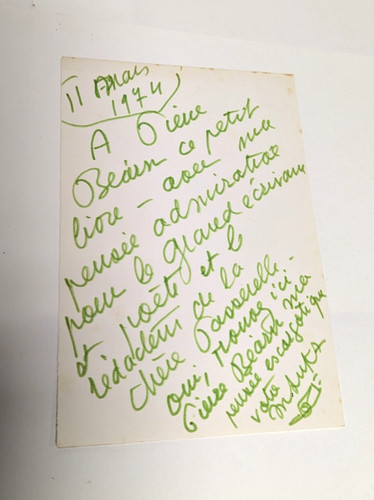 11 Mars
1974
A Pierre
Béarn ce petit
livre - avec ma
pensée admirative
pour le grand écrivain
et poète et le
rédacteur de la
chère Passerelle -
oui, trouve ici -
Pierre Béarn ma
pensée escargotique
votre